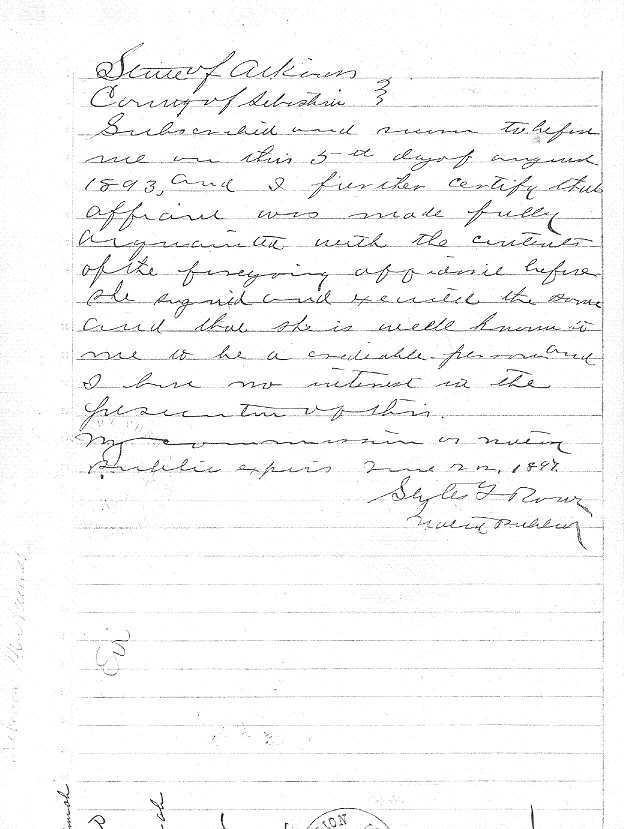 State of Arkansas
County of Sebastian
Subscribed and sworn to before
me on this 5-d day of August
1893, and I further certify that
affiant was made fully
acquainted with the contents
of the foregoing affidavit before
she signed and executed the same
and that she is well known to
me to be a credible person and
I have no interest in the
prosecution of this.
My commission as notary
public expires June 22, 189
Notary Public